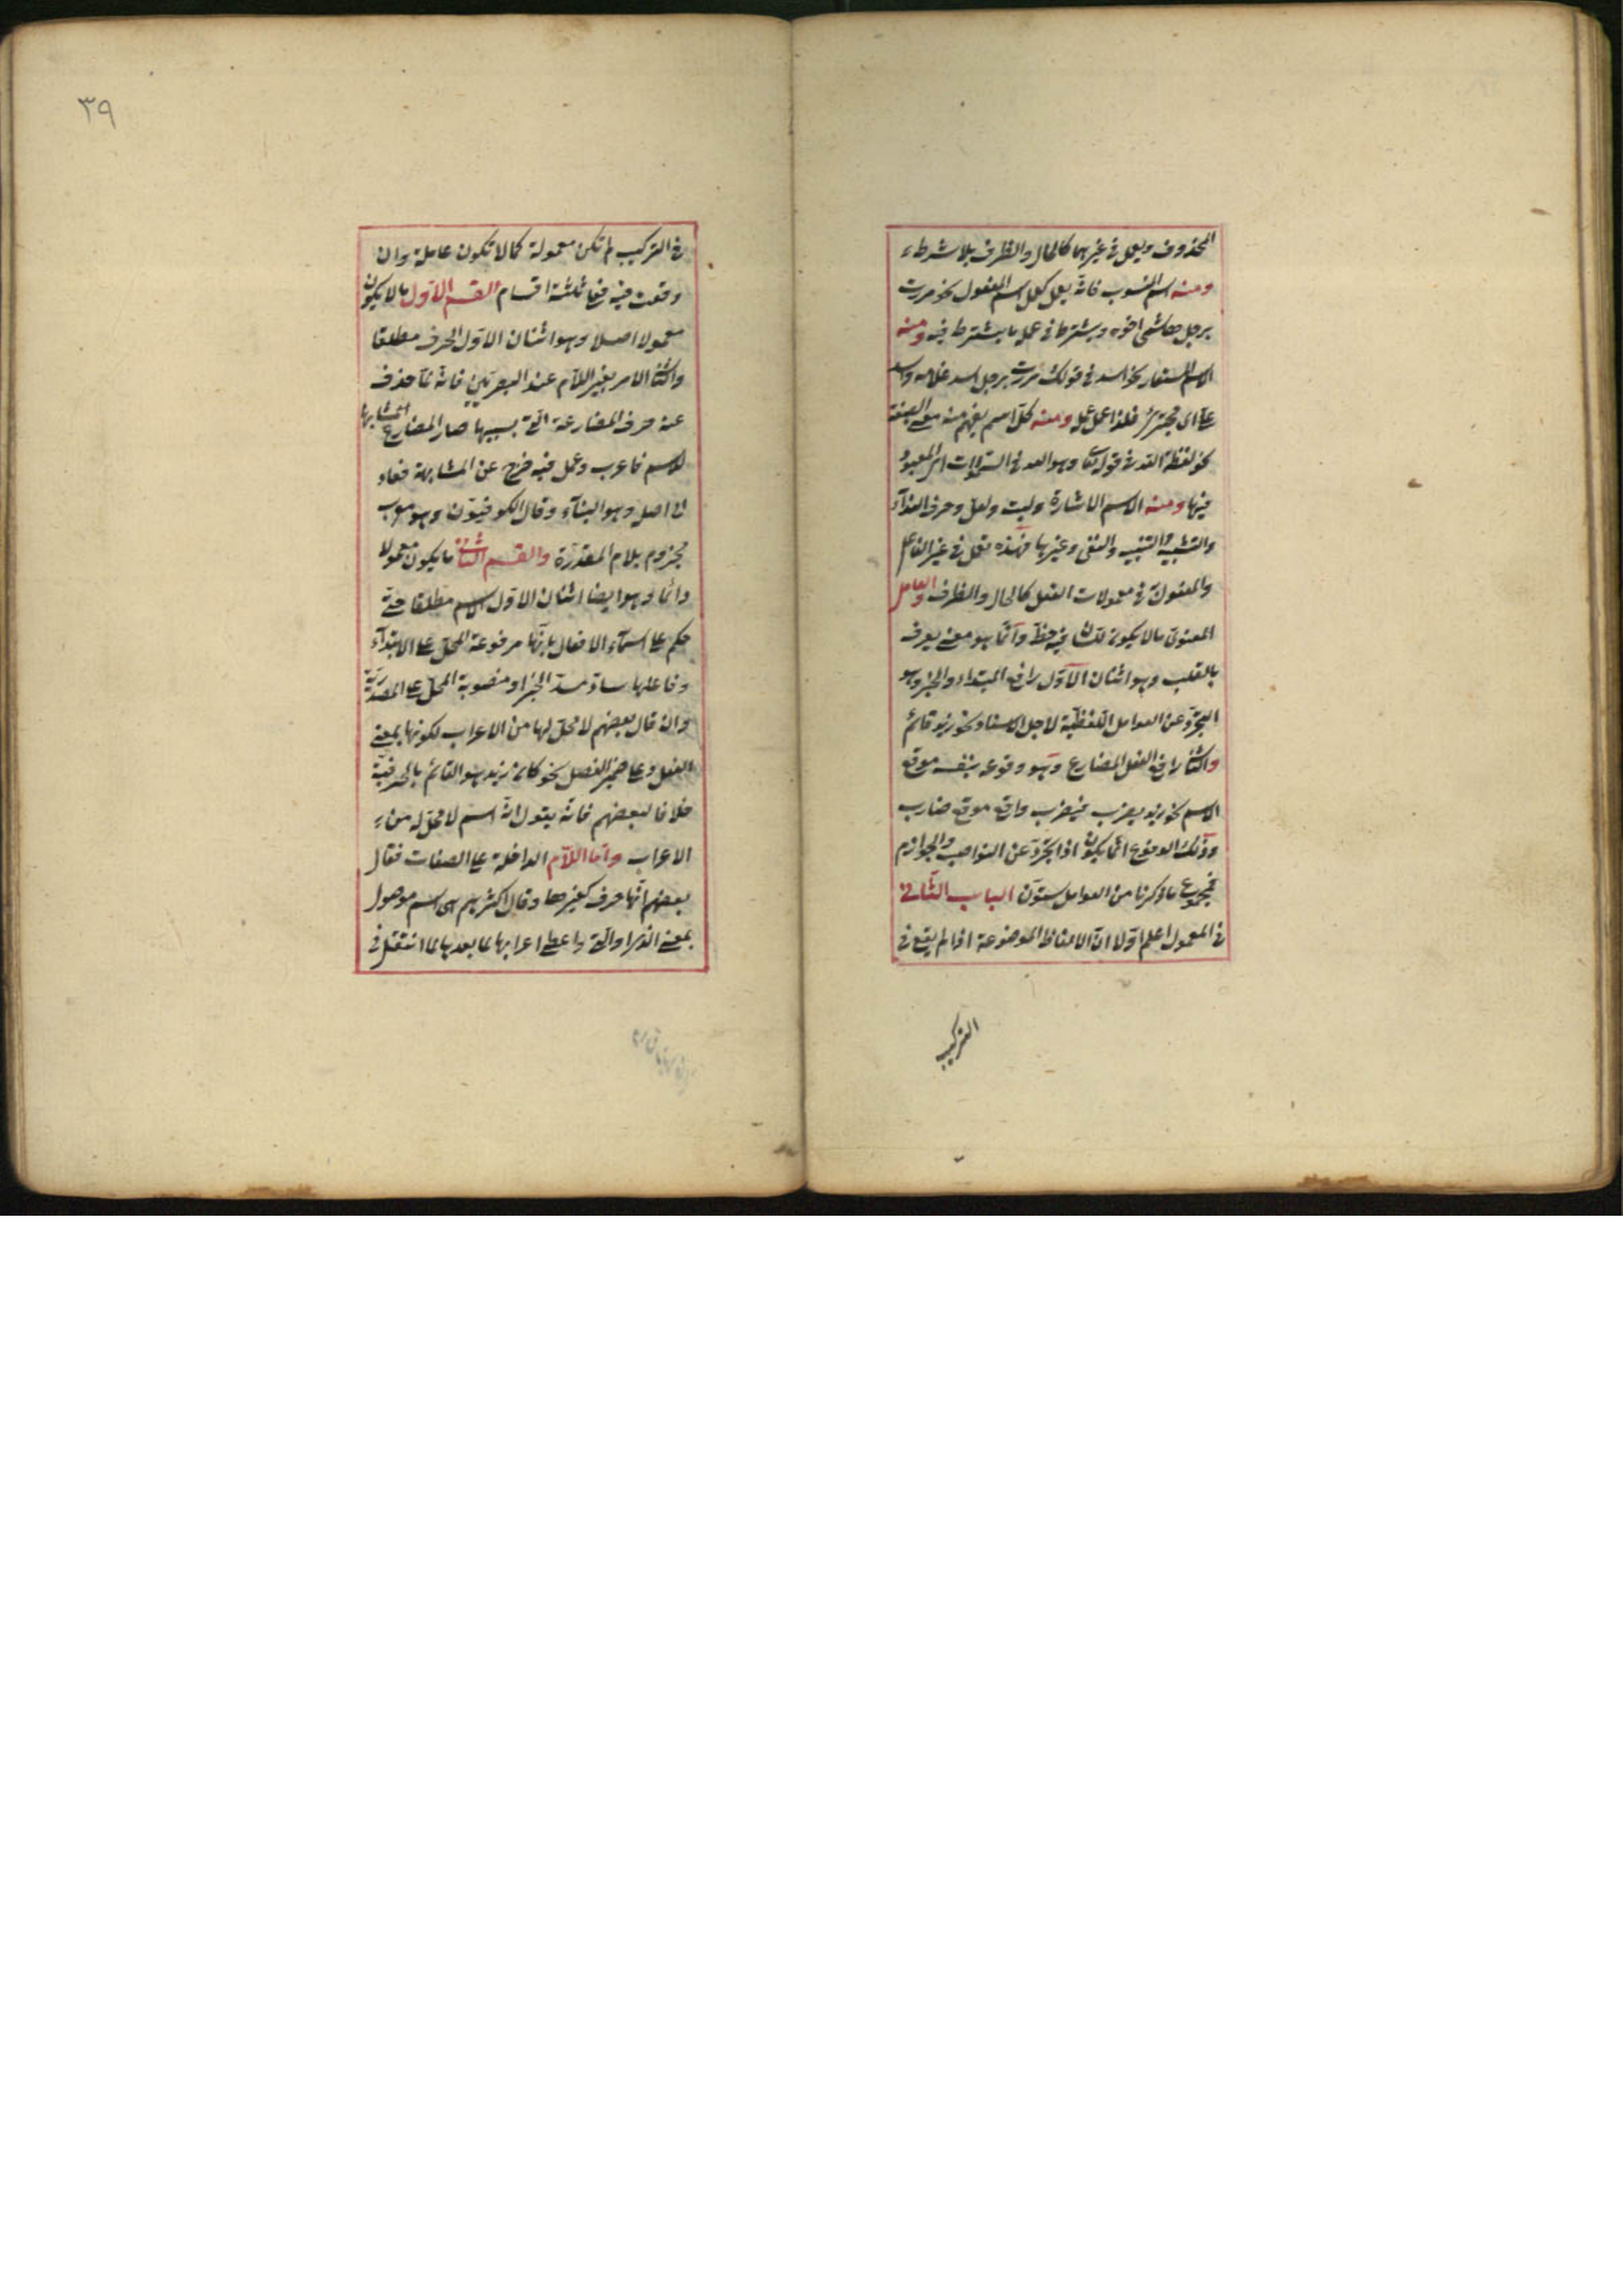 المحذوف ويعمل في غيرهما كالحال والظرف بلا شرط
ومنه اسم المنسوب فانه يعمل كعمل اسم المفعول نحو مررت
برجل هاشمي اخوه ويشترط في عمله ما يشترط فيه ومنه
الاسم المستعار نحو اسد في قولك مررت برجل اسد غلامه واسد
علي اي مجترئ فلذا عمل عمله ومنه كل اسم يفهم منه معنى الصفة
نحو لفظة الله في قوله تعالى وهو الله في السموات اي المعبود
فيها ومنه الاسم الاشارة وليت ولعل وحرف النداء
والتشبيه والتنبيه والنفي وغيرها فهذه تعمل في غير الفاعل
والمفعول به في معمولات الفعل كالحال والظرف والعامل
المعنوي ما لا يكون للسان فيه حظ وانما هو معنى يعرف
بالقلب وهو اثنان الاول رافع المبتداء والخبر وهو
التجرد عن العوامل اللفظية لاجل الاسناد نحو زيد قائم
والثاني رافع الفعل المضارع وهو وقوعه بنفسه موقع
الاسم نحو زيد يضرب فيضرب واقع موقع ضارب
وذلك الوقوع انما يكون اذا تجرد عن النواصب والجوازم
فمجموع ما ذكرنا من العوامل ستون الباب الثاني
في المعمول اعلم اولا ان الالفاظ الموضوعة اذا لم يقع في
التركيب
٣٩
في التركيب لم تكن معمولة كما لا تكون عاملة وان
وقعت فيه فعلى ثلثة اقسام القسم الاول ما لا يكون
معمولا اصلا وهو اثنان الاول الحرف مطلقا
والثاني الامر بغير اللام عند البصريين فانه لما حذف
عنه حرف المضارعة التي بسببها صار المضارع مشابها
للاسم فاعرب وعمل فيه خرج عن المشابهة فعاد
الى اصله وهو البناء وقال الكوفيون وهو معرب
مجزوم بلام المقدرة والقسم الثاني ما يكون معمولا
دائما وهو ايضا اثنان الاول الاسم مطلقا حتى
حكم على اسماء الافعال بانها مرفوعة المحل على الابتداء
وفاعلها ساد مسد الخبر او منصوبة المحل على المصدرية
وان قال بعضهم لا محل لها من الاعراب لكونها بمعنى
الفعل وعلى ضمير الفصل نحو كان زيد هو القائم بالحرفية
خلافا لبعضهم فانه يقول انه اسم لا محل له من
الاعراب واما اللام الداخلة على الصفات فقال
بعضهم انها حرف كغيرها وقال اكثرهم هي اسم موصول
بمعنى الذي او التي واعطي اعرابها لما بعدها لما انتقل في